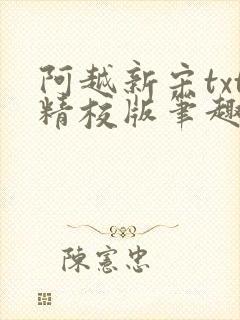 阿越新宋txt
精校版笔趣
陳憲忠